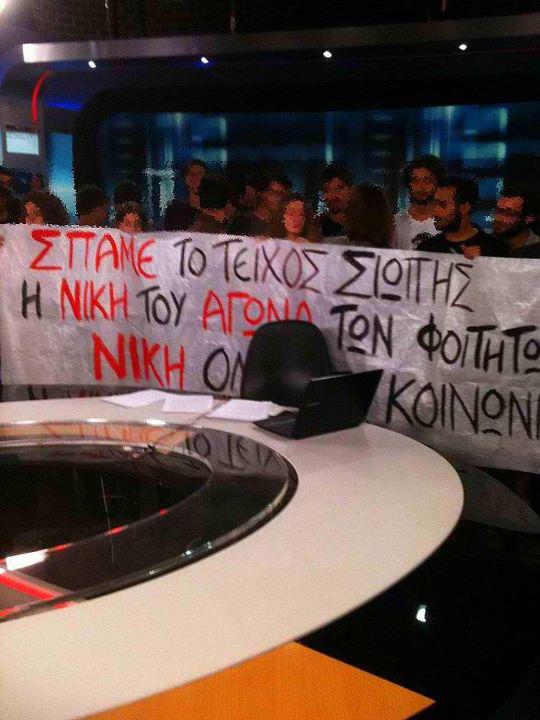 ΣΠΑΜΕ ΤΟ ΤΕΙΧΟΣ ΣΙΩΠΗΣ
Η ΝΙΚΗ ΤΟΥ ΑΓΩΝΑ ΤΩΝ ΦΟΙΤΗΤΩ
ΝΙΚΗ ΟΛ ΚΟΙΝΩΝΙ